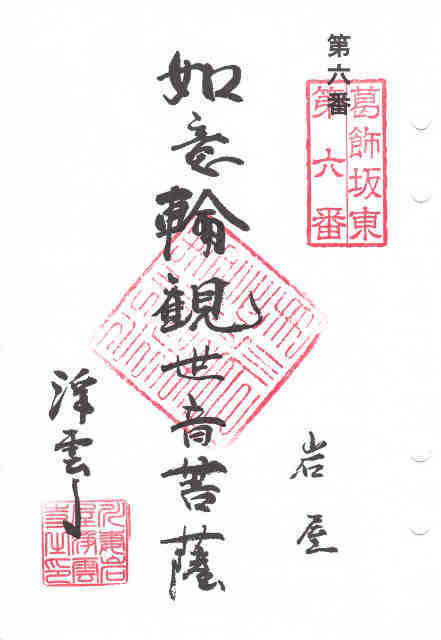 第六番
葛飾坂東
第六番
如意輪観世音菩薩
岩屋
浄雲寺